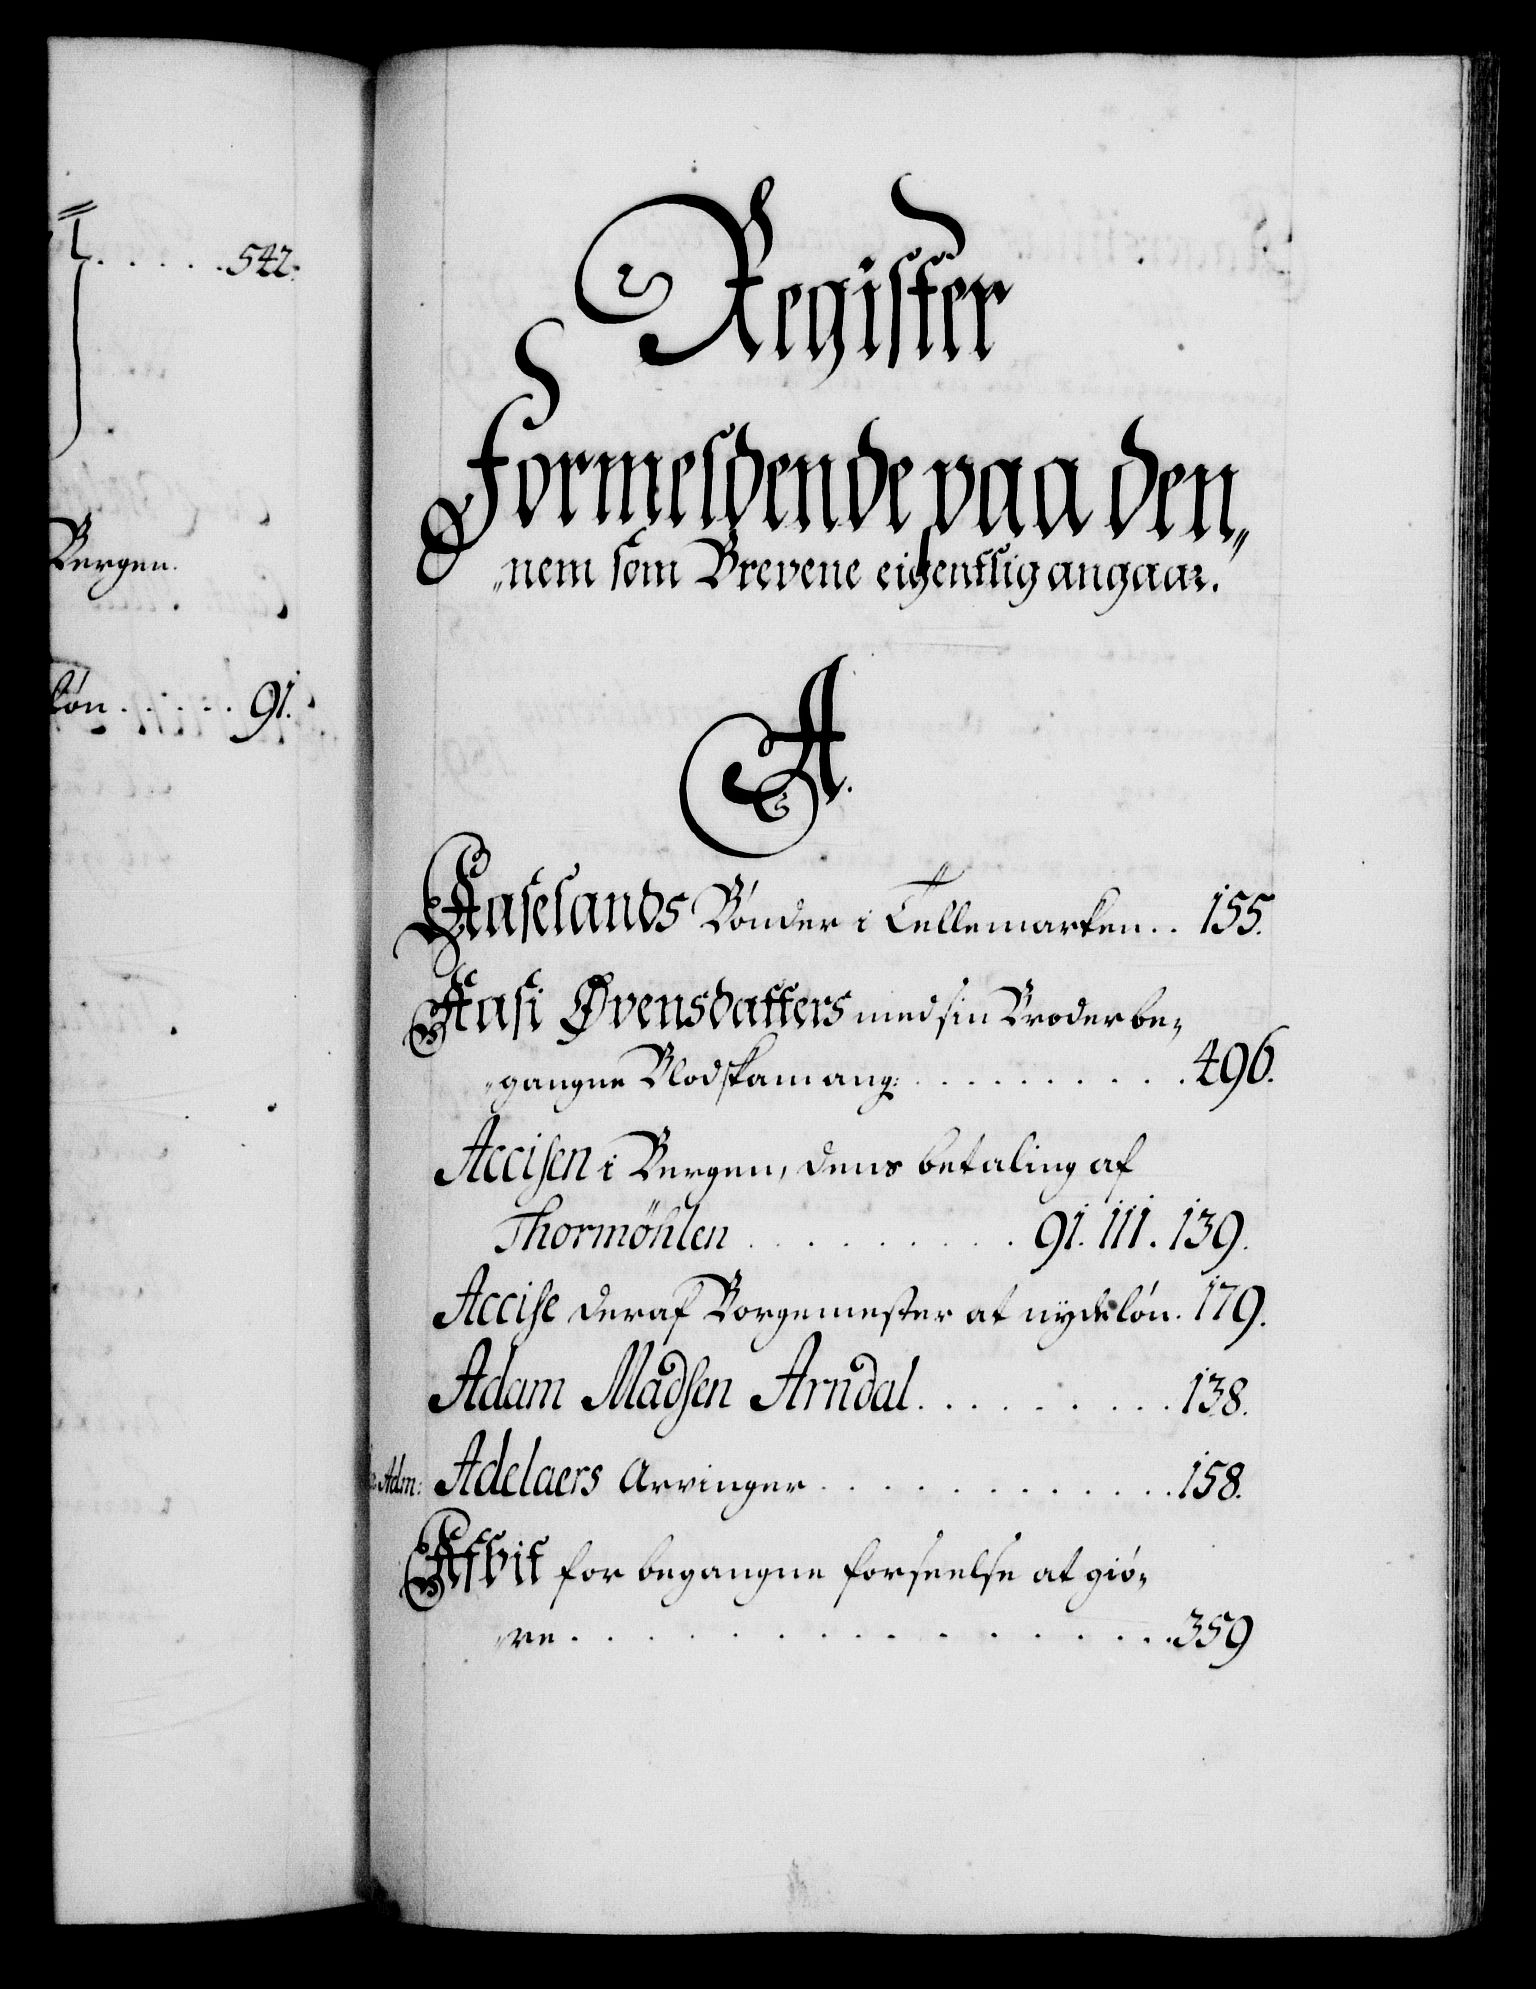 542.
Bergen.
løn . . . . . 91.
Register
Formeldende paa den„
„nem som Brevene eigentlig angaar.
A.
Aaselands Bønder i Tellemarken . . 155.
Aasi Øvensdatters med sin Broder be„
„gangne Blodskam ang: . . . . . . . . . . 496.
Accisen i Bergen, dens betaling af
Thormöhlen . . . . . . . . . 91. 111. 139.
Accise deraf Borgemester at nyde løn. 179.
Adam Madsen Arndal . . . . . . . . . 138.
Adm: Adelaers Arvinger . . . . . . . . . . . . 158.
Afbit for begangne forseelse at giö„
„re . . . . . . . . . . . . . . . . 359